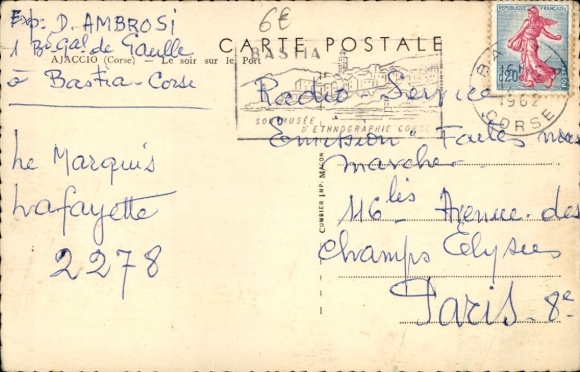 6€
Exp: D. AMBROSI
1 Bd Gal de Gaulle
à Bastia-Corse
CARTE POSTALE
AJACCIO (Corse) — Le soir sur le Port
BASTIA
SON MUSÉE
D'ETHNOGRAPHIE CORSE
REPUBLIQUE FRANÇAISE
0,20
POSTES
BASTIA
1962
CORSE
Le Marquis
Lafayette
2278
COMBIER IMP. MACON
Radio-Service
Emission: Faites nous
marcher
116 bis Avenue des
Champs Elysées
Paris-8e